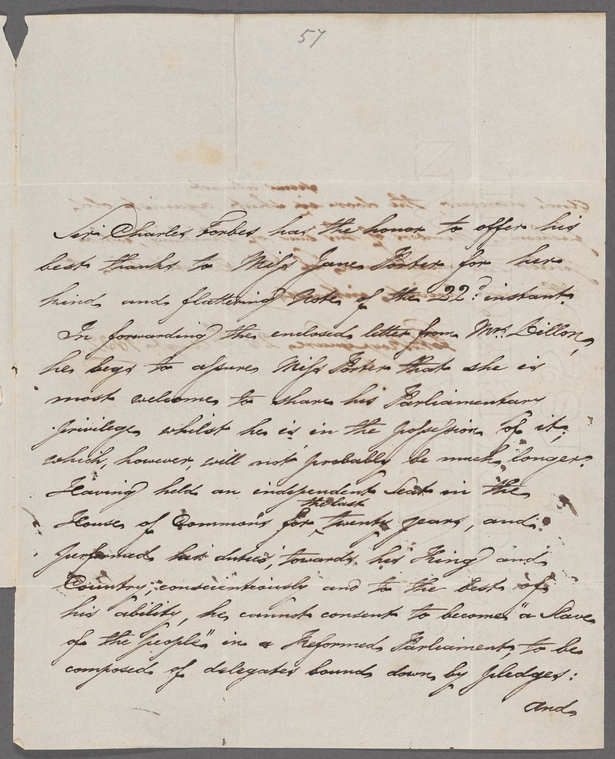 57
Sir Charles Forbes has the honor to offer his
best thanks to Miss Jane Porter for her
kind and flattering Note of the 22d. instant.
In forwarding the enclosed letter from Mrs. Dillon,
he begs to assure Miss Porter that she is
most welcome to share his Parliamentary
privilege whilst he is in the possession of it;
which, however, will not probably be much longer.
Having held an independent Seat in the
the last
House of Commons for twenty years, and
performed his duties, towards his King and
Country, conscientiously and to the best of
his ability, he cannot consent to become "a Slave
of the people" in a Reformed Parliament, to be
composed of delegates bound down by pledges:
and